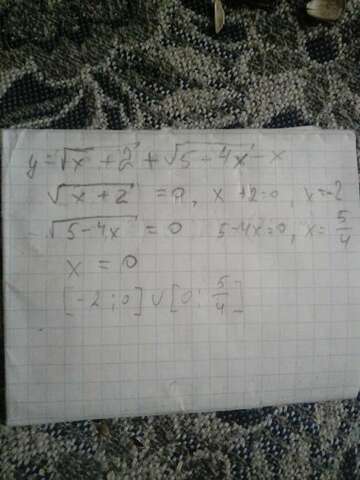 y=√x+2 + √5-4x - x
√x+2 = 0, x+2=0, x=-2
√5-4x = 0 5-4x=0, x=5/4
x = 0
[-2;0]∪[0;5/4]